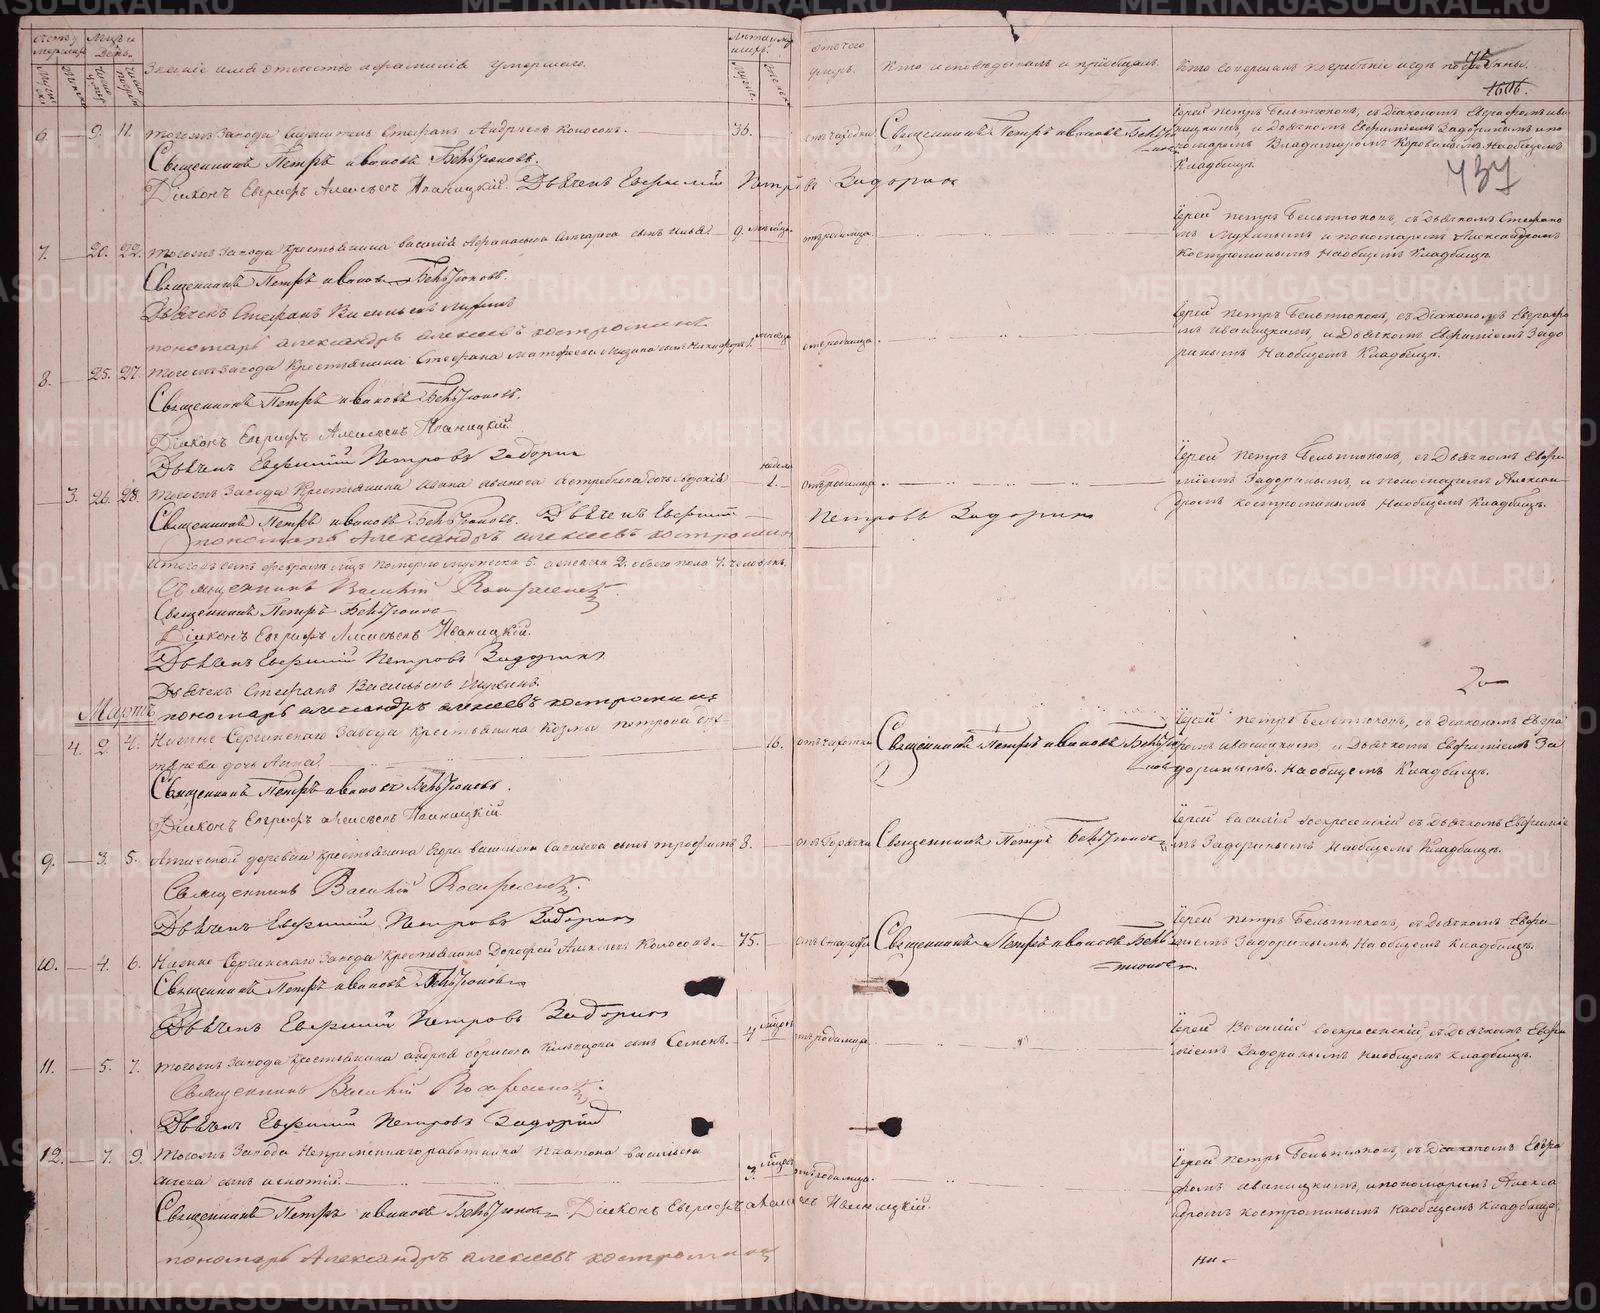 Счетъ умершихъ
Мѣсяцъ и день
Званіе имя отчество и фамилія умершаго.
Лѣта умершихъ
отъ чего умеръ.
Кто исповѣдывалъ и пріобщалъ.
Кто совершалъ погребеніе и гдѣ погребены.
75
1606.
437
6. — 9. 11. тогожъ Завода служитель Стефанъ Андреевъ Колосовъ. 36. — отъ чахотки Священникъ Петръ Ивановъ Бельтюковъ
Іерей Петръ Бельтюковъ, съ Діакономъ Евграфомъ Иваницкимъ, и Дьячкомъ Евфиміемъ Задоринымъ и пономаремъ Владимиромъ На общемъ Кладбищѣ.
Священникъ Петръ Ивановъ Бельтюковъ.
Діаконъ Евграфъ Алексѣевъ Иваницкій. Дьячекъ Евфимій Петровъ Задоринъ
7. — 20. 22. тогожъ Завода крестьянина Василія Афанасьева сынъ 9. мѣсяц. отъ родимца
Іерей Петръ Бельтюковъ, съ Дьячкомъ Стефаномъ и пономаремъ Александромъ Костроминымъ На общемъ Кладбищѣ
Священникъ Петръ Ивановъ Бельтюковъ.
Дьячекъ Стефанъ Васильевъ
пономарь Александръ Алексеевъ Костроминъ
8. — 25. 27. тогожъ Завода крестьянина Стефана Матфеева сынъ Никифоръ. отъ родимца
Іерей Петръ Бельтюковъ, съ Діакономъ Евграфомъ Иваницкимъ, и Дьячкомъ Евфиміемъ Задоринымъ На общемъ Кладбищѣ.
Священникъ Петръ Ивановъ Бельтюковъ.
Діаконъ Евграфъ Алексѣевъ Иваницкій.
Дьячекъ Евфимій Петровъ Задоринъ
— 3. 26. 28. тогожъ Завода Крестьянина Ивана Иванова дочь Евдокія недели 1. отъ родимца
Іерей Петръ Бельтюковъ, съ Дьячкомъ Евфиміемъ Задоринымъ, и пономаремъ Александромъ Костроминымъ На общемъ Кладбищѣ.
Священникъ Петръ Ивановъ Бельтюковъ. Дьячекъ Евфимій Петровъ Задоринъ
пономарь Александръ Алексеевъ Костроминъ
Итого въ семъ Февралѣ мѣсяцѣ померло мужеска 5. женска 2. обоего пола 7. человѣкъ.
Священникъ Василій Воскресенскій
Священникъ Петръ Бельтюковъ
Діаконъ Евграфъ Алексѣевъ Иваницкій.
Дьячекъ Евфимій Петровъ Задоринъ
Дьячекъ Стефанъ Васильевъ
Мартъ пономарь Александръ Алексеевъ Костроминъ
4. 2. 4. Нижне Сергинскаго Завода крестьянина Козмы Петрова дочь Анна — 16. отъ чахотки Священникъ Петръ Ивановъ Бельтюковъ
Іерей Петръ Бельтюковъ, съ Діакономъ Евграфомъ Иваницкимъ, и Дьячкомъ Евфиміемъ Задоринымъ. На общемъ Кладбищѣ.
Священникъ Петръ Ивановъ Бельтюковъ.
Діаконъ Евграфъ Алексѣевъ Иваницкій.
9. — 3. 5. деревни крестьянина Васильева сынъ Трофимъ 8. — отъ горячки Священникъ Петръ Бельтюковъ
Іерей Василій Воскресенскій съ Дьячкомъ Евфиміемъ Задоринымъ На общемъ Кладбищѣ.
Священникъ Василій Воскресенскій.
Дьячекъ Евфимій Петровъ Задоринъ
10. — 4. 6. Нижне Сергинскаго Завода крестьянинъ Дорофей Алексѣевъ Колосовъ. 75. — отъ старости Священникъ Петръ Ивановъ Бельтюковъ.
Іерей Петръ Бельтюковъ, съ Дьячкомъ Евфиміемъ Задоринымъ, На общемъ Кладбищѣ.
Священникъ Петръ Ивановъ Бельтюковъ
Дьячекъ Евфимій Петровъ Задоринъ
11. — 5. 7. тогожъ Завода крестьянина Андрея Борисова сынъ Семенъ. 4 отъ родимца
Іерей Василій Воскресенскій, съ Дьячкомъ Евфиміемъ Задоринымъ На общемъ Кладбищѣ.
Священникъ Василій Воскресенскій.
Дьячекъ Евфимій Петровъ Задоринъ
12. — 7. 9. тогожъ Завода Непремѣннаго работника Платона Васильева сынъ 3. отъ родимца.
Іерей Петръ Бельтюковъ, съ Діакономъ Евграфомъ Иваницкимъ, и пономаремъ Александромъ Костроминымъ На общемъ Кладбищѣ.
Священникъ Петръ Ивановъ Бельтюковъ Діаконъ Евграфъ Алексѣевъ Иваницкій.
пономарь Александръ Алексеевъ Костроминъ
METRIKI.GASO-URAL.RU